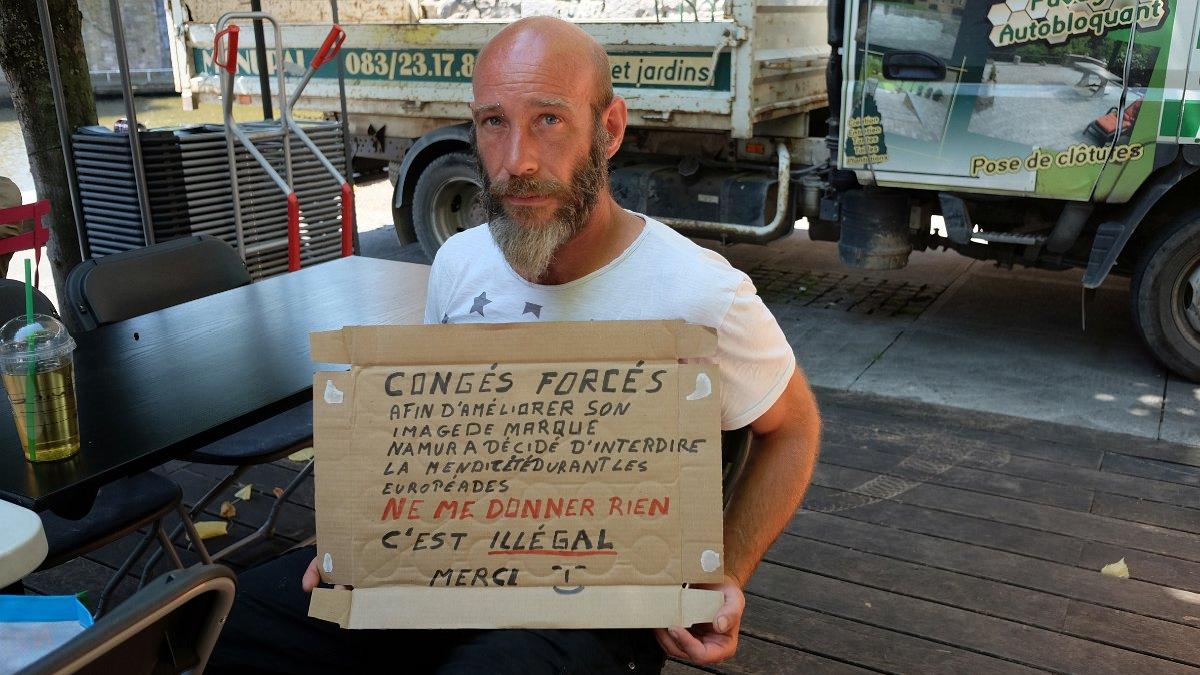 083/23.17.8
et jardins
Autobloquant
Pose de clôtures
CONGÉS FORCÉS
AFIN D'AMÉLIORER SON
IMAGE DE MARQUE
NAMUR A DÉCIDÉ D'INTERDIRE
LA MENDICÉTÉ DURANT LES
EUROPÉADES
NE ME DONNER RIEN
C'EST ILLÉGAL
MERCI